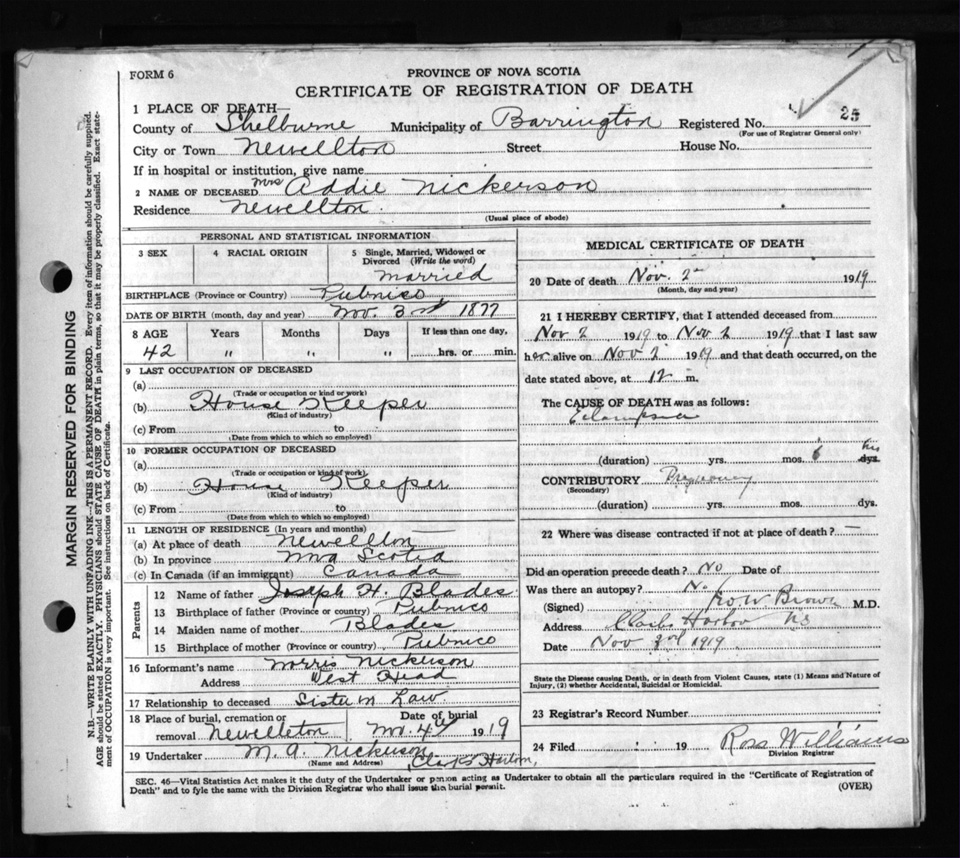 FORM 6
PROVINCE OF NOVA SCOTIA
CERTIFICATE OF REGISTRATION OF DEATH
1 PLACE OF DEATH—
County of Shelburne Municipality of Barrington Registered No. 25
(For use of Registrar General only)
City or Town Newellton Street House No.
If in hospital or institution, give name
2 NAME OF DECEASED Mrs Addie Nickerson
Residence Newellton
(Usual place of abode)
PERSONAL AND STATISTICAL INFORMATION
3 SEX 4 RACIAL ORIGIN 5 Single, Married, Widowed or Divorced (Write the word)
married
BIRTHPLACE (Province or Country) Pubnico
DATE OF BIRTH (month, day and year) Nov. 3rd 1877
8 AGE Years Months Days If less than one day,
42 " " " hrs. or min.
9 LAST OCCUPATION OF DECEASED
(a)
(Trade or occupation or kind of work)
(b) House Keeper
(Kind of industry)
(c) From to
(Date from which to which so employed)
10 FORMER OCCUPATION OF DECEASED
(a)
(Trade or occupation or kind of work)
(b) House Keeper
(Kind of industry)
(c) From to
(Date from which to which so employed)
11 LENGTH OF RESIDENCE (In years and months)
(a) At place of death Newellton
(b) In province Nova Scotia
(c) In Canada (if an immigrant) Canada
Parents
12 Name of father Joseph H. Blades
13 Birthplace of father (Province or country) Pubnico
14 Maiden name of mother Blades
15 Birthplace of mother (Province or country) Pubnico
16 Informant's name Morris Nickerson
Address West Head
17 Relationship to deceased Sister in Law
18 Place of burial, cremation or removal Newelleton Date of burial Nov. 4th 1919
19 Undertaker M. A. Nickerson
(Name and Address) Clarks Harbor,
MEDICAL CERTIFICATE OF DEATH
20 Date of death Nov. 2nd 1919
(Month, day and year)
21 I HEREBY CERTIFY, that I attended deceased from
Nov 2 1919 to Nov 2 1919 that I last saw
her alive on Nov 2 1919 and that death occurred, on the
date stated above, at 12 m.
The CAUSE OF DEATH was as follows:
Eclampsia
(duration) yrs. mos. 6 hrs dys.
CONTRIBUTORY Pregnancy
(Secondary)
(duration) yrs. mos. dys.
22 Where was disease contracted if not at place of death? —
Did an operation precede death? No Date of
Was there an autopsy? No
(Signed) Brown M.D.
Address Clarks Harbor NS
Date Nov 3rd 1919
State the Disease causing Death, or in death from Violent Causes, state (1) Means and Nature of
Injury, (2) whether Accidental, Suicidal or Homicidal.
23 Registrar's Record Number
24 Filed 19 Ross Williams
Division Registrar
SEC. 46—Vital Statistics Act makes it the duty of the Undertaker or person acting as Undertaker to obtain all the particulars required in the "Certificate of Registration of
Death" and to fyle the same with the Division Registrar who shall issue the burial permit. (OVER)
MARGIN RESERVED FOR BINDING
N.B.—WRITE PLAINLY WITH UNFADING INK—THIS IS A PERMANENT RECORD. Every item of information should be carefully supplied.
AGE should be stated EXACTLY. PHYSICIANS should STATE CAUSE OF DEATH in plain terms, so that it may be properly classified. Exact state-
ment of OCCUPATION is very important. See instructions on back of Certificate.